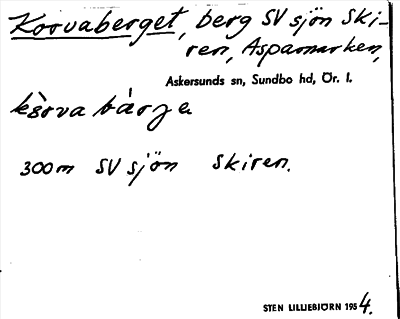 Korvaberget, berg SV sjön Ski-
ren, Aspamarken,
Askersunds sn, Sundbo hd, Ör. l.
kòrva bàrje
300 m SV sjön Skiren.
STEN LILLIEBJÖRN 1954.